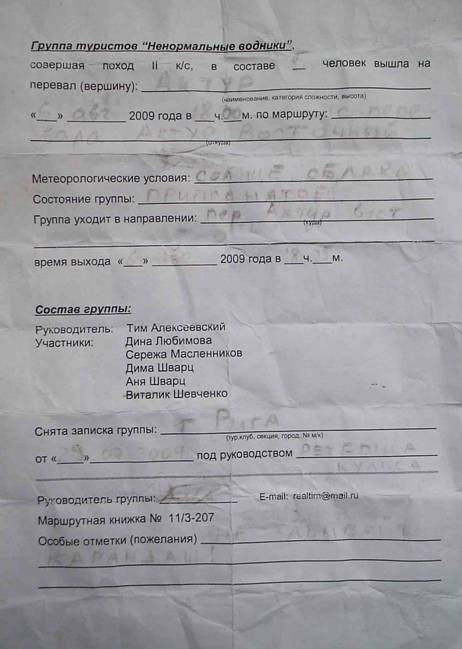 Группа туристов "Ненормальные водники",
совершая поход II к/с, в составе человек вышла на
перевал (вершину): Актуру
(наименование, категория сложности, высота)
« » авг 2009 года в 18 ч. 00 м. по маршруту: с пере
вала Актуру Восточный
(откуда)
Метеорологические условия: солнце облака
Состояние группы:
Группа уходит в направлении: пер. вост
(куда)
время выхода « » 2009 года в 18 ч. м.
Состав группы:
Руководитель: Тим Алексеевский
Участники: Дина Любимова
Сережа Масленников
Дима Шварц
Аня Шварц
Виталик Шевченко
Снята записка группы: г Рига
(тур.клуб, секция, город, № м/к)
от « » 2009 под руководством
Руководитель группы: E-mail: realtim@mail.ru
Маршрутная книжка № 11/3-207
Особые отметки (пожелания)
карандаш!